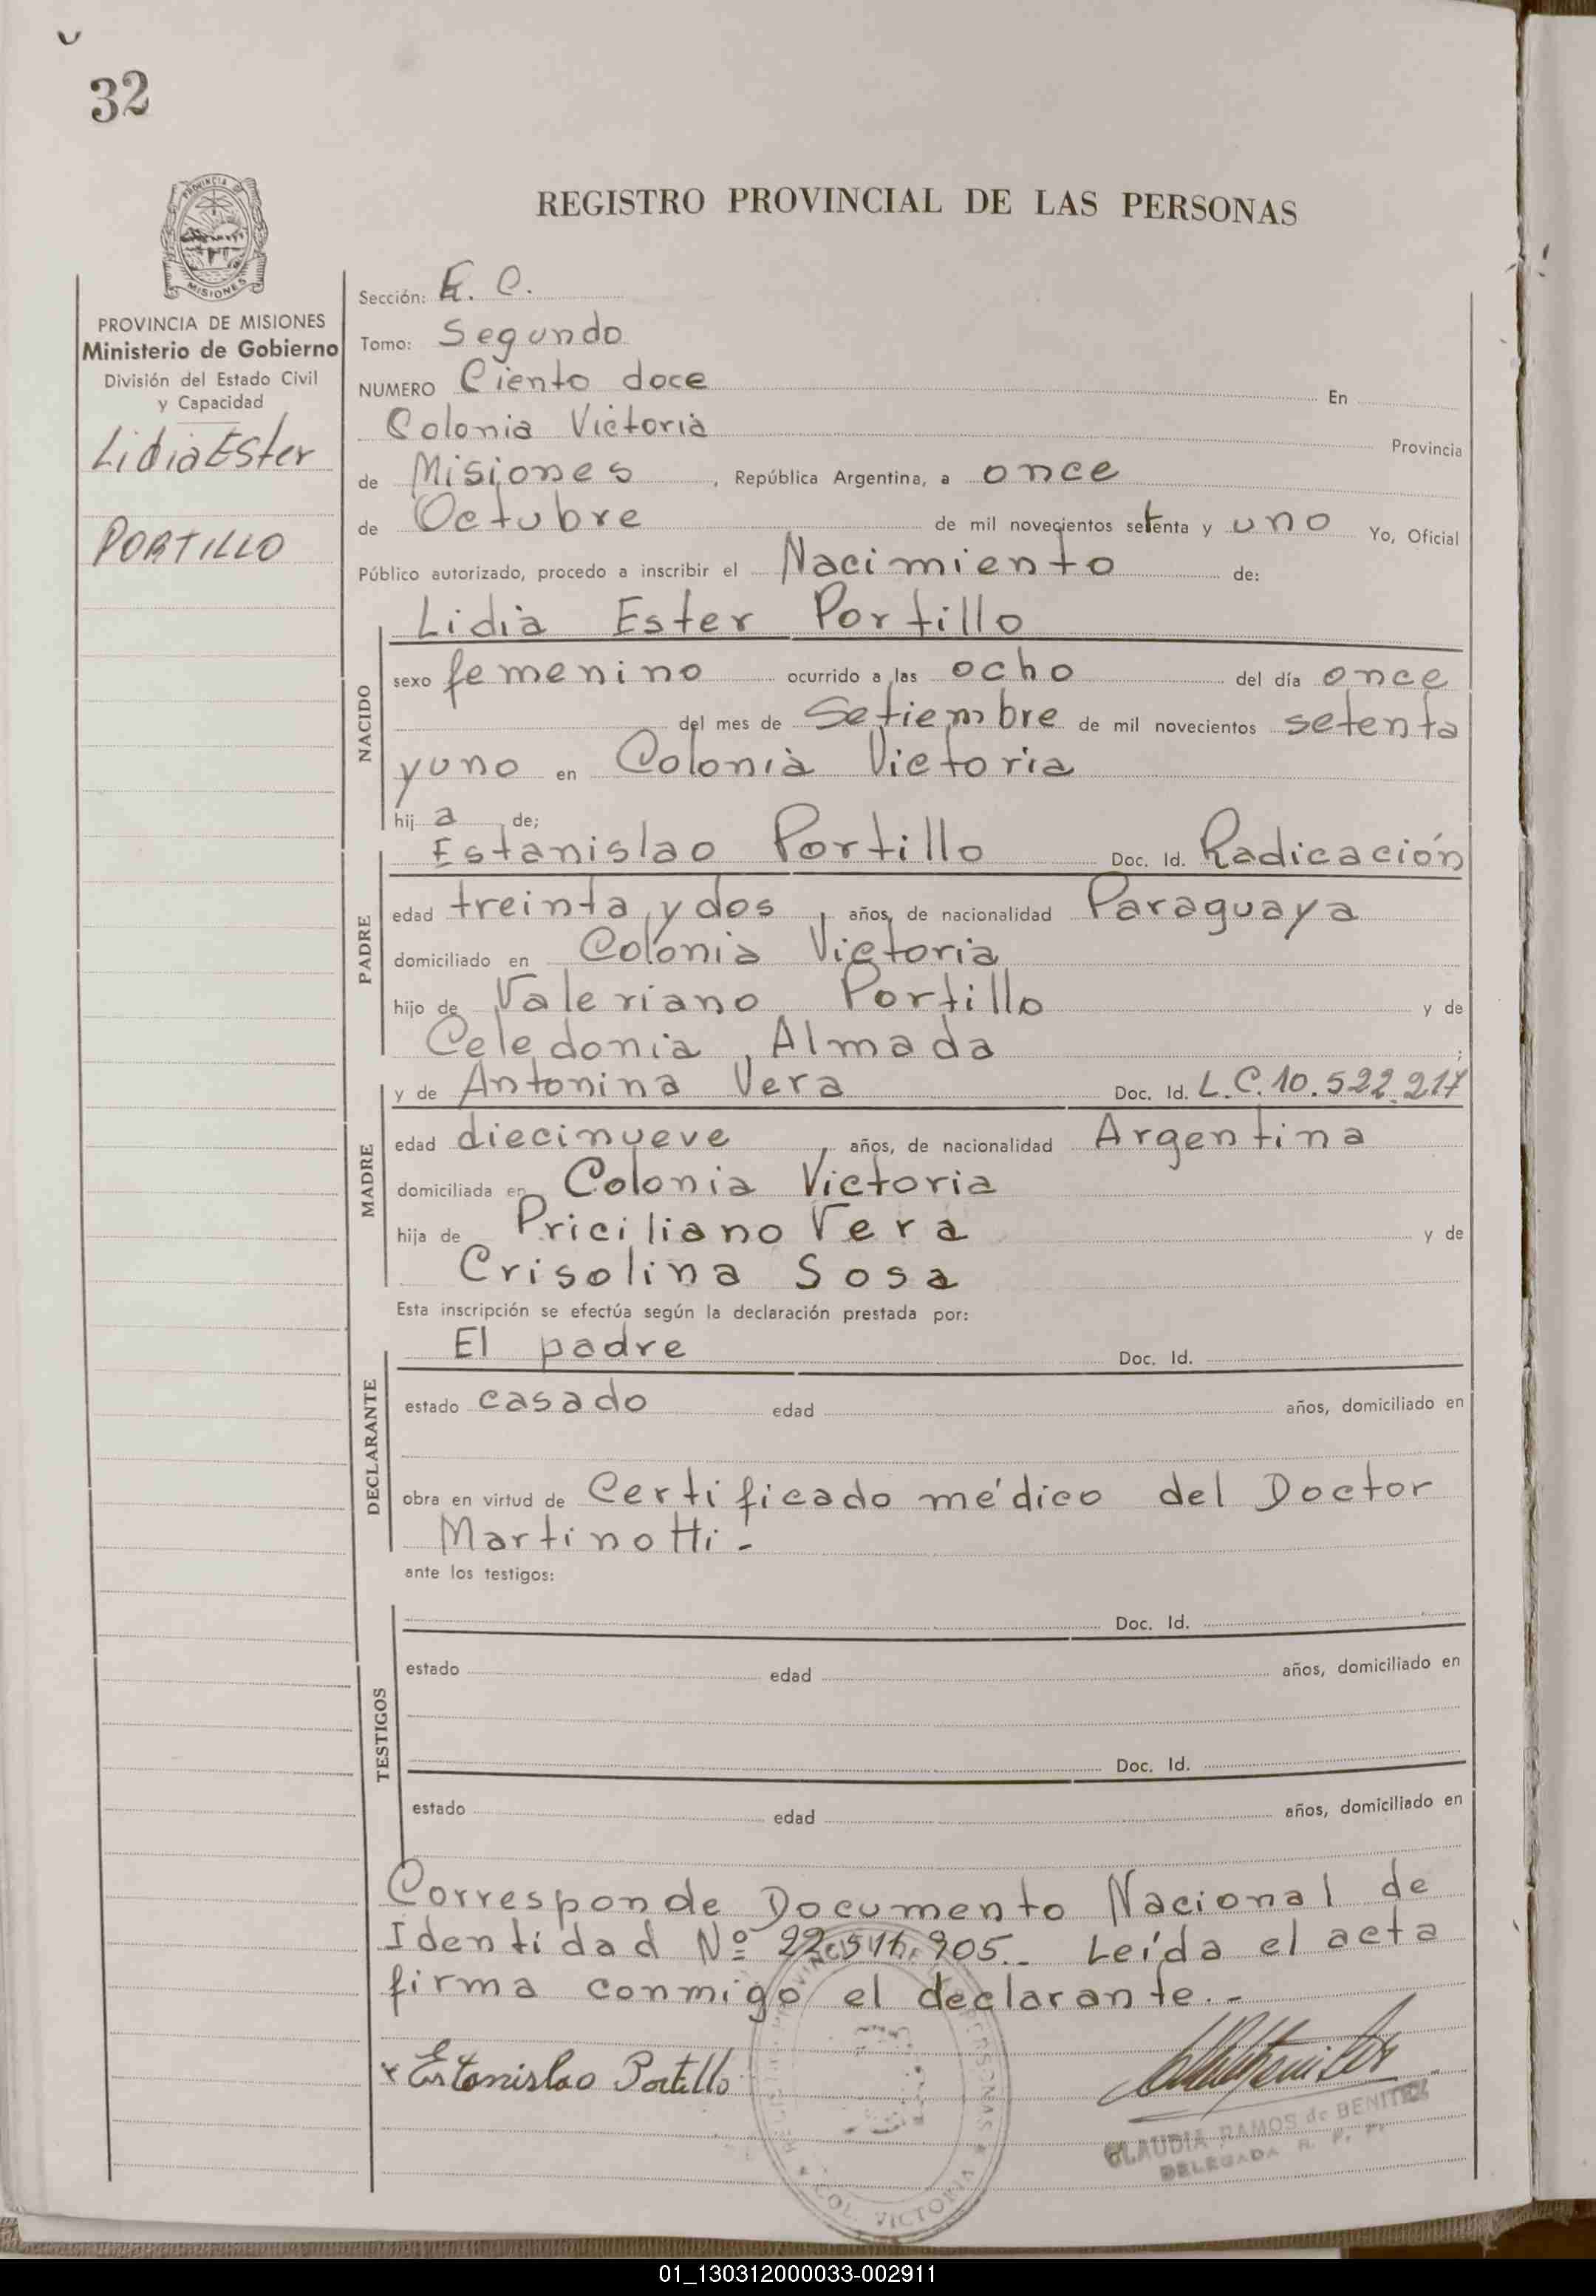 32
REGISTRO PROVINCIAL DE LAS PERSONAS
PROVINCIA DE MISIONES
Ministerio de Gobierno
División del Estado Civil
y Capacidad
Lidia Ester
PORTILLO
Sección: E. C.
Tomo: Segundo
NUMERO Ciento doce En
Colonia Victoria Provincia
de Misiones, República Argentina, a once
de Octubre de mil novecientos setenta y uno Yo, Oficial
Público autorizado, procedo a inscribir el Nacimiento de:
Lidia Ester Portillo
NACIDO
sexo femenino ocurrido a las ocho del día once
del mes de Setiembre de mil novecientos setenta
y uno en Colonia Victoria
hij a de;
PADRE
Estanislao Portillo Doc. Id. Radicación
edad treinta y dos, años, de nacionalidad Paraguaya
domiciliado en Colonia Victoria
hijo de Valeriano Portillo y de
Celedonia Almada;
MADRE
y de Antonina Vera Doc. Id. L.C. 10.522.217
edad diecinueve, años, de nacionalidad Argentina
domiciliada en Colonia Victoria
hija de Priciliano Vera y de
Crisolina Sosa
Esta inscripción se efectúa según la declaración prestada por:
DECLARANTE
El padre Doc. Id.
estado casado edad años, domiciliado en
obra en virtud de Certificado médico del Doctor
Martinotti.-
ante los testigos:
TESTIGOS
Doc. Id.
estado edad años, domiciliado en
Doc. Id.
estado edad años, domiciliado en
Corresponde Documento Nacional de
Identidad Nº 22.516.905.- Leída el acta
firma conmigo el declarante.-
x Estanislao Portillo
CLAUDIA RAMOS de BENITEZ
DELEGADA R. P. P.
COL. VICTORIA
01_130312000033-002911